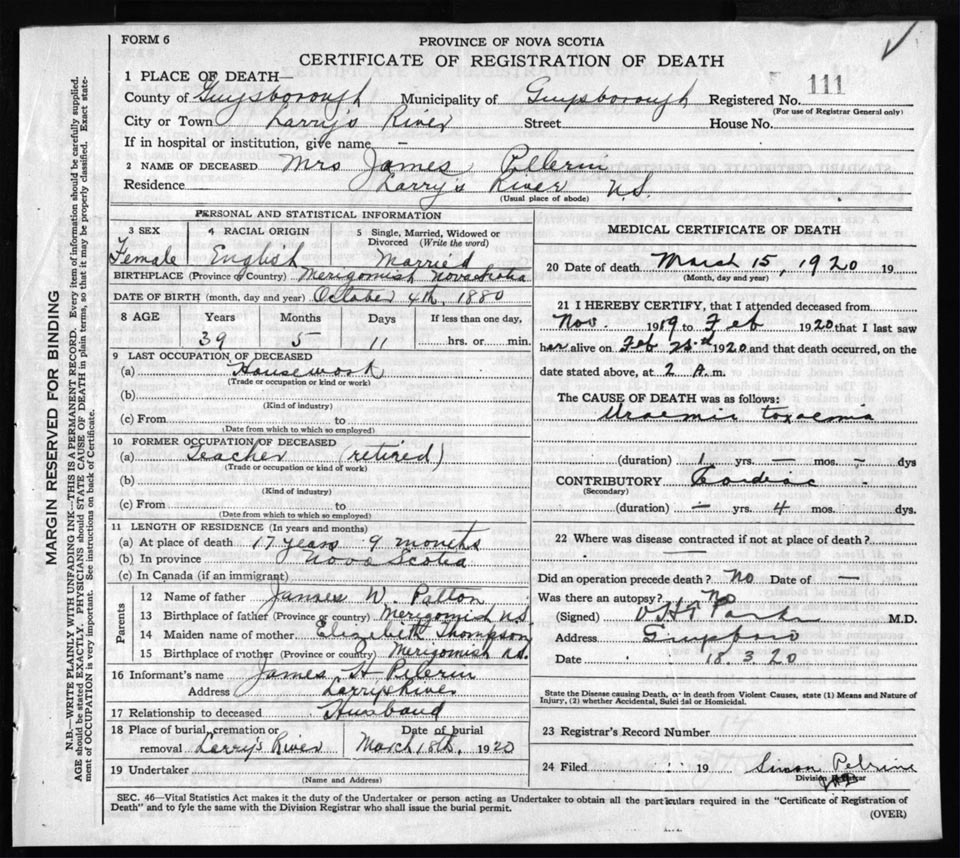 FORM 6
PROVINCE OF NOVA SCOTIA
CERTIFICATE OF REGISTRATION OF DEATH
1 PLACE OF DEATH—
County of Guysborough Municipality of Guysborough Registered No. 111
(For use of Registrar General only)
City or Town Larry's River Street House No.
If in hospital or institution, give name —
2 NAME OF DECEASED Mrs James Pelerin
Residence Larry's River N.S.
(Usual place of abode)
PERSONAL AND STATISTICAL INFORMATION
3 SEX 4 RACIAL ORIGIN 5 Single, Married, Widowed or Divorced (Write the word)
Female English Married
BIRTHPLACE (Province or Country) Merigomish Nova Scotia
DATE OF BIRTH (month, day and year) October 4th, 1880
8 AGE Years Months Days If less than one day,
39 5 11 hrs. or min.
9 LAST OCCUPATION OF DECEASED
(a) Housework
(Trade or occupation or kind or work)
(b)
(Kind of industry)
(c) From to
(Date from which to which so employed)
10 FORMER OCCUPATION OF DECEASED
(a) Teacher (retired)
(Trade or occupation or kind of work)
(b)
(Kind of industry)
(c) From to
(Date from which to which so employed)
11 LENGTH OF RESIDENCE (In years and months)
(a) At place of death 17 years 9 months
(b) In province Nova Scotia
(c) In Canada (if an immigrant)
Parents
12 Name of father James W. Patton
13 Birthplace of father (Province or country) Merigomish N.S.
14 Maiden name of mother Elizebeth Thompson
15 Birthplace of mother (Province or country) Merigomish N.S.
16 Informant's name James H Pelerin
Address Larrys River
17 Relationship to deceased Husband
18 Place of burial, cremation or removal Larry's River
Date of burial March 18th, 1920
19 Undertaker
(Name and Address)
MEDICAL CERTIFICATE OF DEATH
20 Date of death March 15, 1920 19
(Month, day and year)
21 I HEREBY CERTIFY, that I attended deceased from
Nov. 1919 to Feb 1920 that I last saw
her alive on Feb 1920 and that death occurred, on the
date stated above, at 2 A.m.
The CAUSE OF DEATH was as follows:
Uraemic toxaemia
(duration) 1 yrs. — mos. — dys
CONTRIBUTORY Cardiac
(Secondary)
(duration) — yrs. 4 mos. dys.
22 Where was disease contracted if not at place of death?
Did an operation precede death? No Date of —
Was there an autopsy? No
(Signed) M.D.
Address Guysboro
Date 18.3.20
State the Disease causing Death, or in death from Violent Causes, state (1) Means and Nature of
Injury, (2) whether Accidental, Suicidal or Homicidal.
23 Registrar's Record Number 14
24 Filed 19 Simon Pelrine
Division Registrar
SEC. 46—Vital Statistics Act makes it the duty of the Undertaker or person acting as Undertaker to obtain all the particulars required in the "Certificate of Registration of
Death" and to fyle the same with the Division Registrar who shall issue the burial permit.
(OVER)
MARGIN RESERVED FOR BINDING
N.B.—WRITE PLAINLY WITH UNFADING INK—THIS IS A PERMANENT RECORD. Every item of information should be carefully supplied.
AGE should be stated EXACTLY. PHYSICIANS should STATE CAUSE OF DEATH in plain terms, so that it may be properly classified. Exact state-
ment of OCCUPATION is very important. See instructions on back of Certificate.